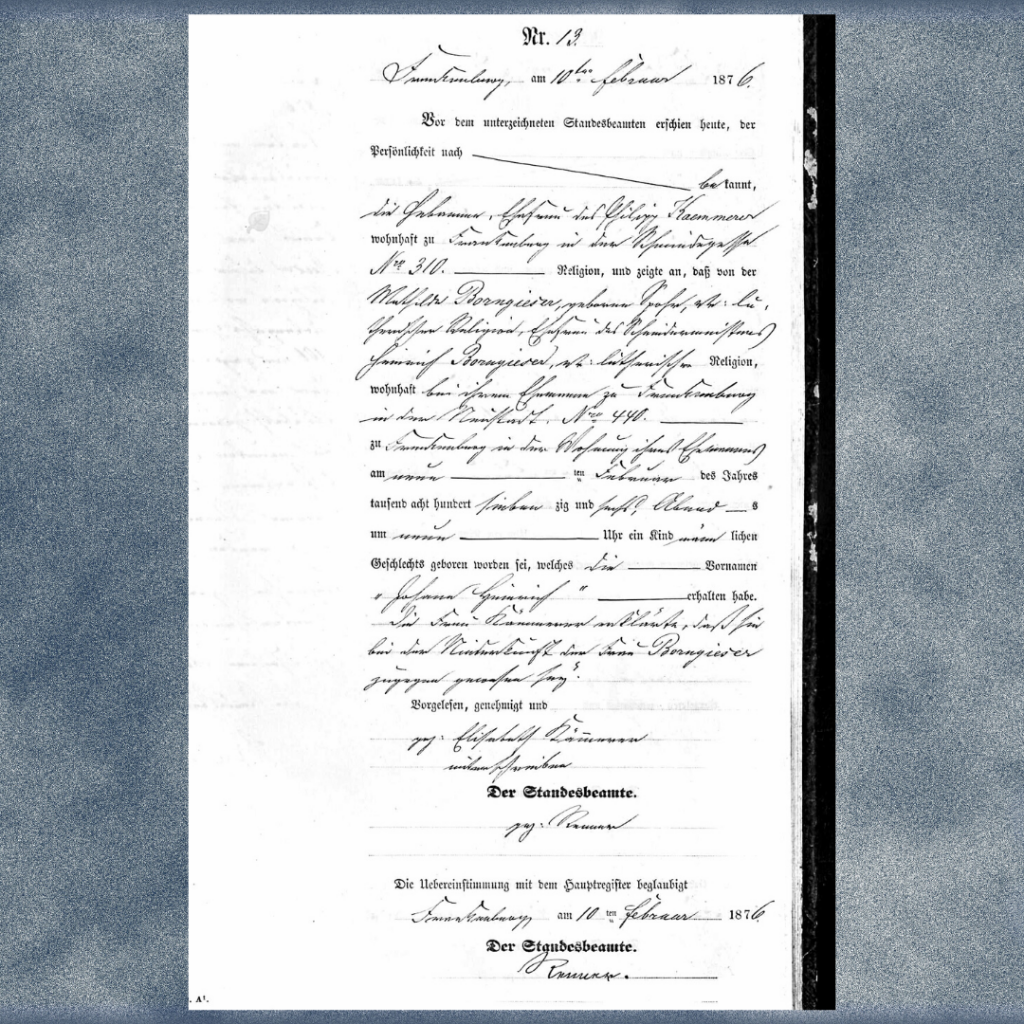 Nr. 13.
Frankenberg, am 10ten Februar 1876.
Vor dem unterzeichneten Standesbeamten erschien heute, der
Persönlichkeit nach
bekannt,
die Hebamme, Ehefrau des Philipp Kaemmerer
wohnhaft zu Frankenberg in der Schmiedegasse
Nro 310. Religion, und zeigte an, daß von der
Mathilde Borngieser, geborene Spohr, ev: lu-
therischer Religion, Ehefrau des Schneidermeisters
Heinrich Borngieser, ev: lutherischer Religion,
wohnhaft bei ihrem Ehemanne zu Frankenberg
in der Neustadt, Nro 440.
zu Frankenberg in der Wohnung ihres Ehemannes
am neun ten Februar des Jahres
tausend acht hundert sieben zig und sechs Abend s
um neun Uhr ein Kind männ lichen
Geschlechts geboren worden sei, welches die Vornamen
" Johann Heinrich " erhalten habe.
Die Frau Kämmerer erklärte, daß sie
bei der Niederkunft der Frau Borngieser
zugegen gewesen sey.
Vorgelesen, genehmigt und
gez: Elisabeth Kämmerer
unterschrieben
Der Standesbeamte.
gez: Renner
Die Uebereinstimmung mit dem Hauptregister beglaubigt
Frankenberg, am 10 ten Februar 1876.
Der Standesbeamte.
Renner.
. A¹.